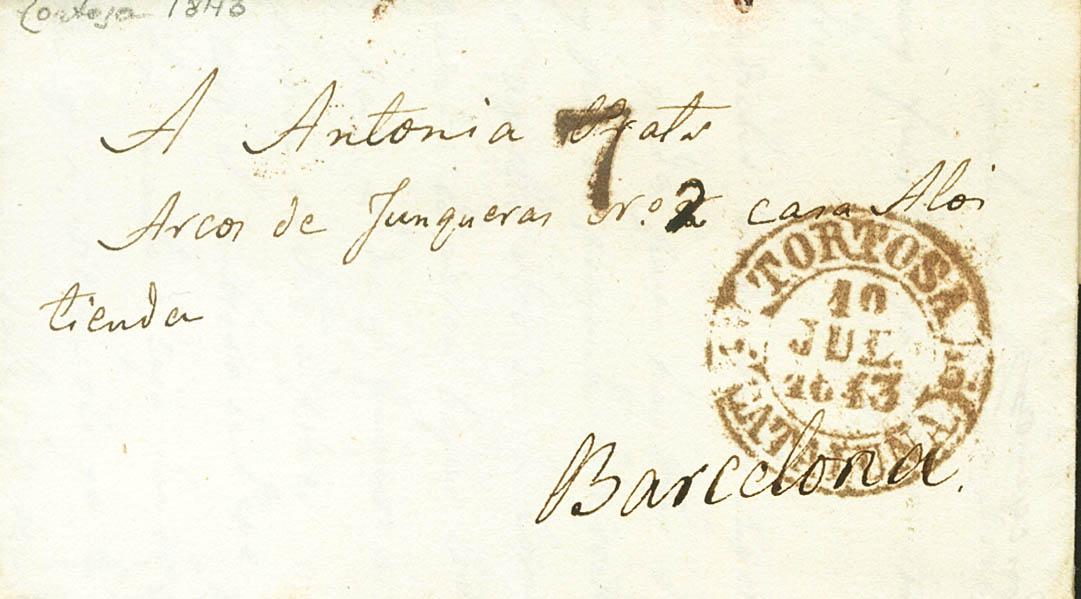 Tortosa 1843
A Antonia Prats
7
Arcos de Junqueras No. 2 casa Aloi
tienda
TORTOSA
10
JUL.
1843
Barcelona.